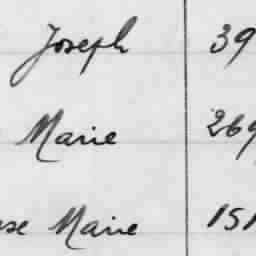 Joseph 39
Marie 269
Marie 151